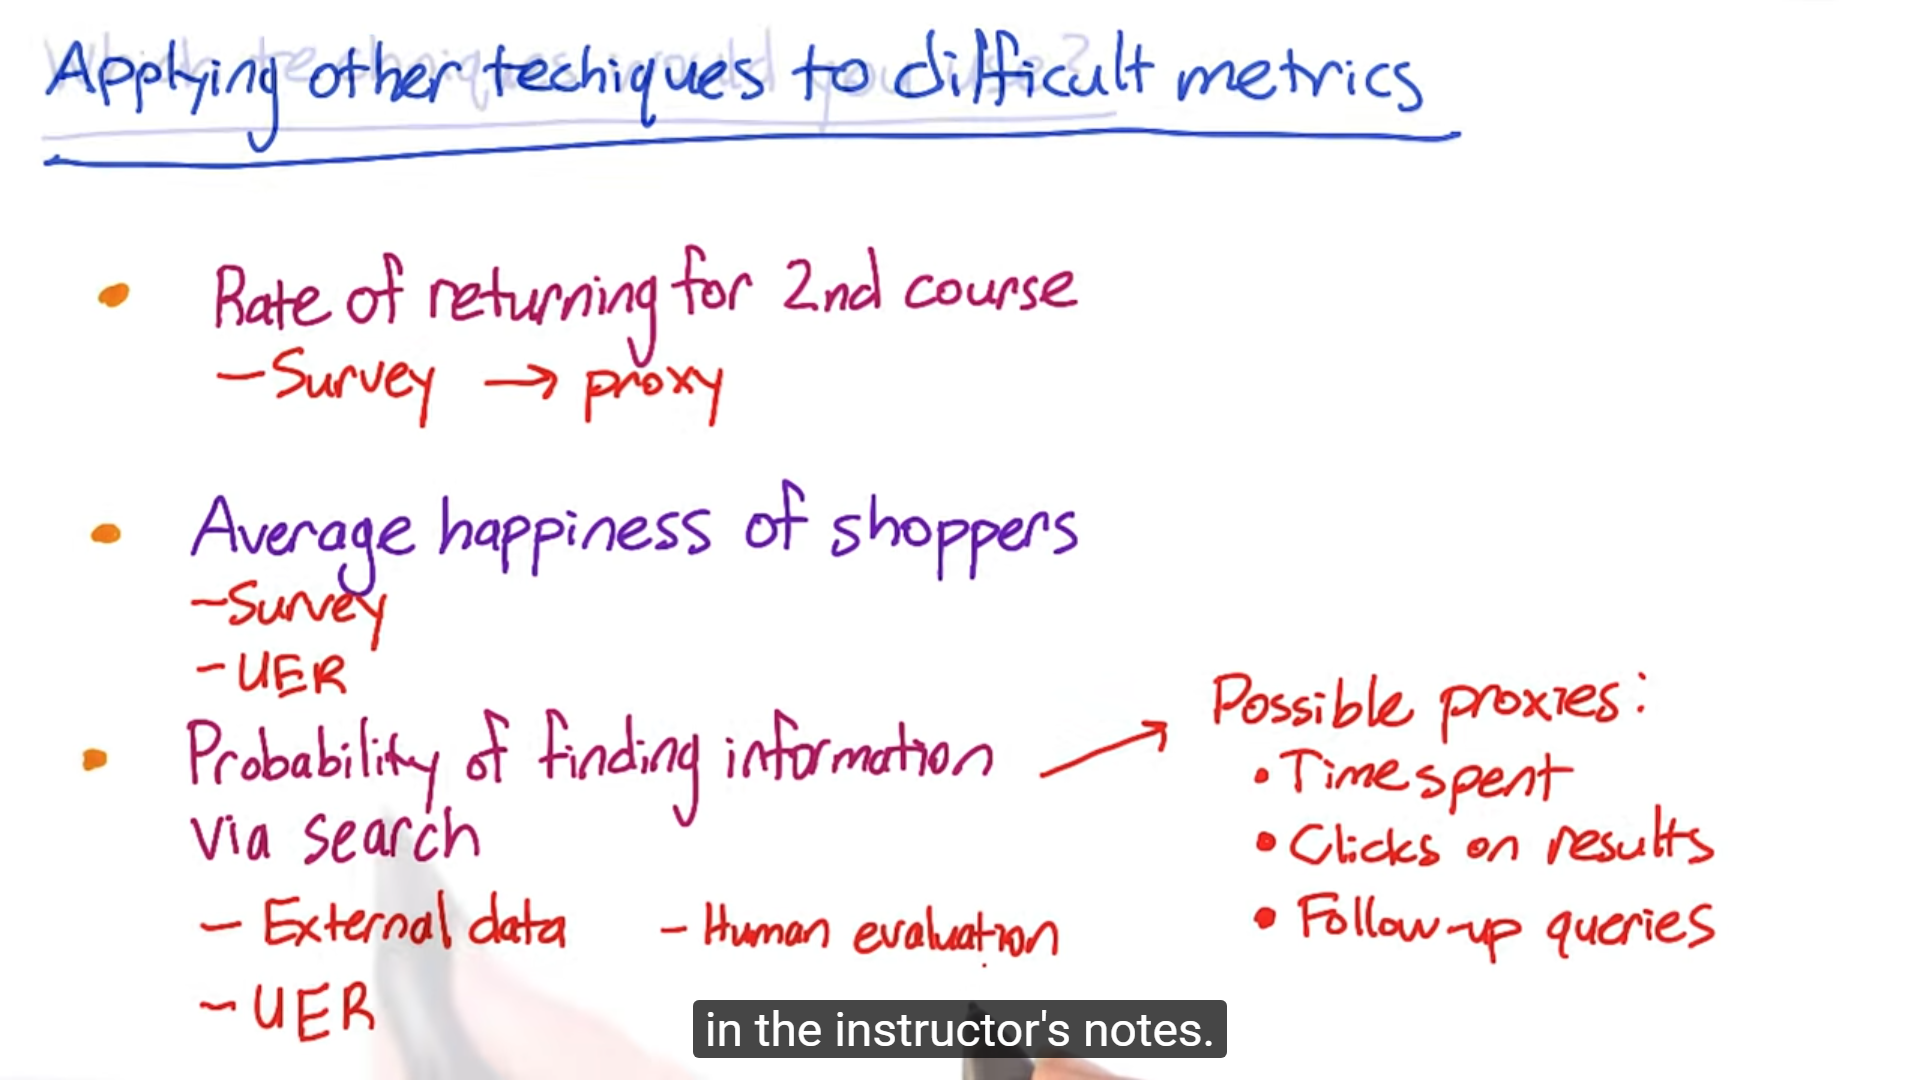 Applying other techiques to difficult metrics
• Rate of returning for 2nd course
- Survey → proxy
• Average happiness of shoppers
- Survey
- UER
• Probability of finding information
via search
- External data - Human evaluation
- UER
Possible proxies:
• Time spent
• Clicks on results
• Follow-up queries
in the instructor's notes.